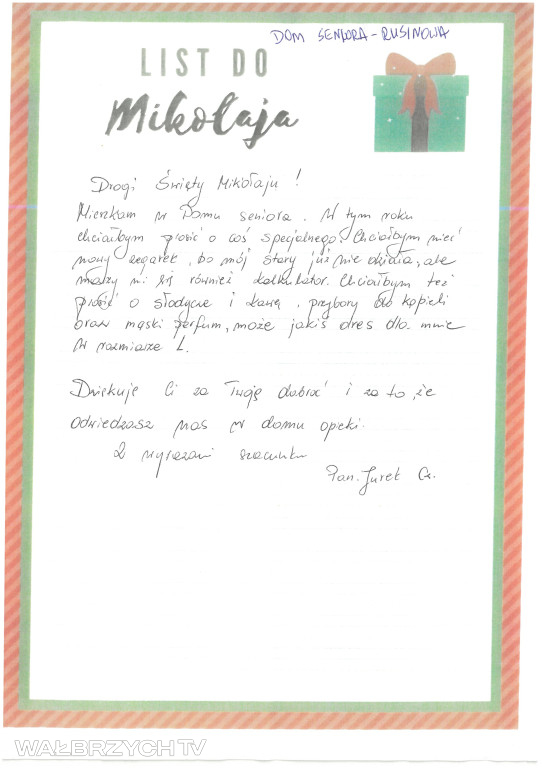 DOM SENIORA - RUSINOWA
LIST DO
Mikołaja
Drogi Święty Mikołaju!
Mieszkam w Domu seniora. W tym roku
chciałbym prosić o coś specjalnego. Chciałbym mieć
nowy zegarek, bo mój stary już nie działa, ale
marzy mi się również kalkulator. Chciałbym też
prosić o słodycze i kawę, przybory do kąpieli
oraz męski perfum, może jakiś dres dla mnie
w rozmiarze L.
Dziękuję Ci za Twoję dobroć i za to, że
odwiedzasz nas w domu opieki.
Z wyrazami szacunku
Pan. Jurek G.
WAŁBRZYCH TV